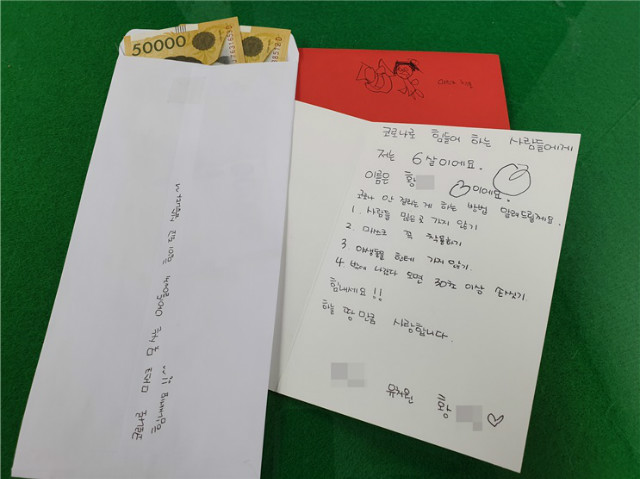 50000
코로나로 힘들어 하는 사람들에게
저는 6살이에요.
이름은 황 이에요.
코로나 안 걸리는 게 하는 방법 알려드릴게요.
1. 사람들 많은곳 가지 않기
2. 마스크 꼭 착용하기
3 야생동물 한테 가지 않기
4. 밖에 나갔다 오면 30초 이상 손씻기.
힘내세요!!
하늘 땅 만큼 사랑합니다.
유치원 황 ♡